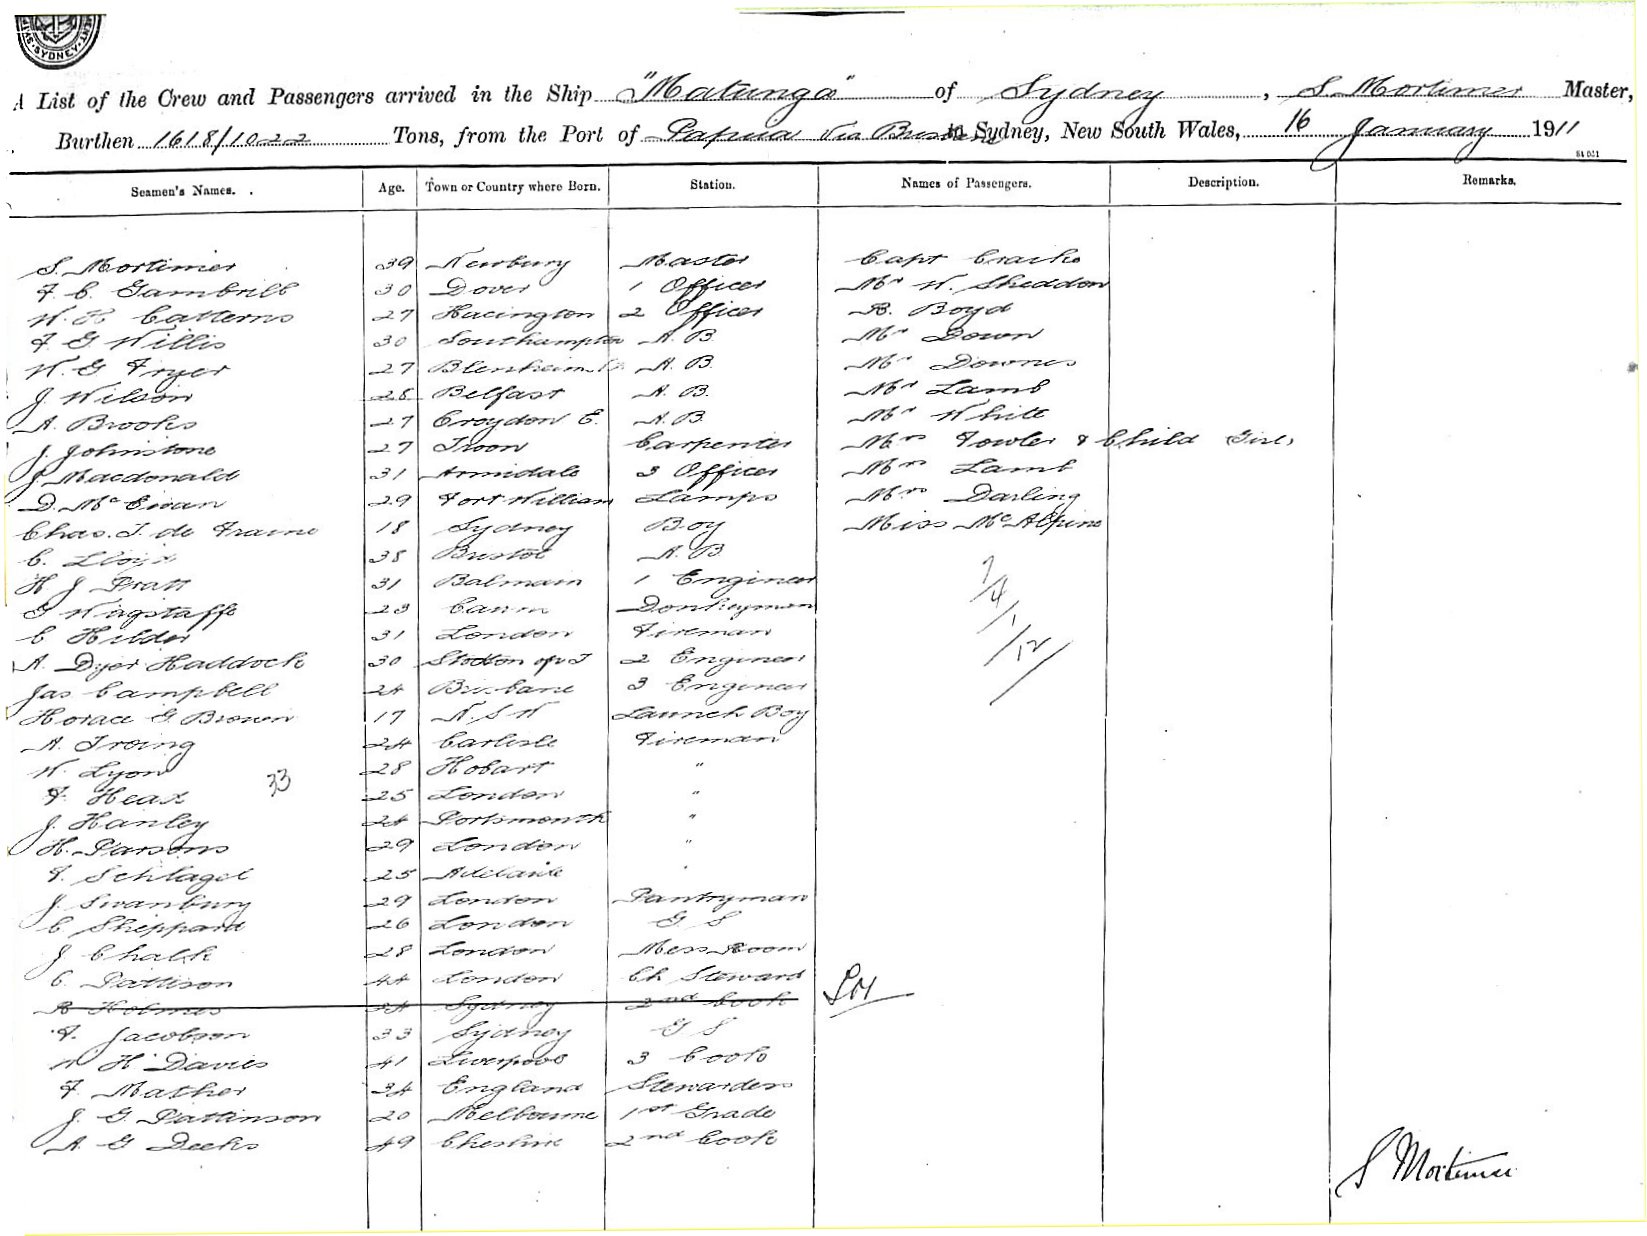 SYDNEY
A List of the Crew and Passengers arrived in the Ship "Matunga" of Sydney, S. Mortimer Master,
Burthen 1618/1022 Tons, from the Port of Papua Via to Sydney, New South Wales, 16 January 1911
Seamen's Names. Age. Town or Country where Born. Station. Names of Passengers. Description. Remarks.
S. Mortimer 39 Newbury Master Capt
F. C. Gambrill 30 Dover 1 Officer Mr W. Sheddon
W. H Catterns 27 Hacington 2 Officer B. Boyd
F. G Willis 30 Southampton A. B. Mr Down
W. G Fryer 27 Blenheim A. B. Mr Downes
J. Wilson 28 Belfast A. B. Mr Lamb
A. Brooks 27 Croydon E. A. B. Mr White
J. Johnstone 27 Troon Carpenter Mrs Fowler & Child
J Macdonald 31 Armidale 3 Officer Mrs Lamb
D. McEwan 29 Fort William Lamps Mrs Darling
Chas. J. de Fraine 18 Sydney Boy Miss McAlpine
C. Lloyd 38 Bristol A. B
H J Pratt 31 Balmain 1 Engineer
G Wagstaffe 23 Donkeyman
C Hilder 31 London Fireman
A. Dyer Haddock 30 Stockton 2 Engineer
Jas Campbell 24 Brisbane 3 Engineer
Horace G Brown 17 N. S W Launch Boy
A. Irving 24 Carlisle Fireman
W. Lyon 28 Hobart "
33
F. Heax 25 London "
J. Hanley 24 Portsmouth "
H. Parsons 29 London "
F. Schlagel 25 Adelaide "
J. Swanbury 29 London Pantryman
C Sheppard 26 London G S
J Chalk 28 London Mess Room
C. Pattison 44 London Ch Steward
R Holmes 34 Sydney 2nd Cook
F. Jacobson 33 Sydney G S
H Davies 41 Liverpool 3 Cook
F. Mather 34 England Stewardess
J. G Pattinson 20 Melbourne 1st Grade
A. G Deeks 49 Cheshire 2nd Cook
S Mortimer